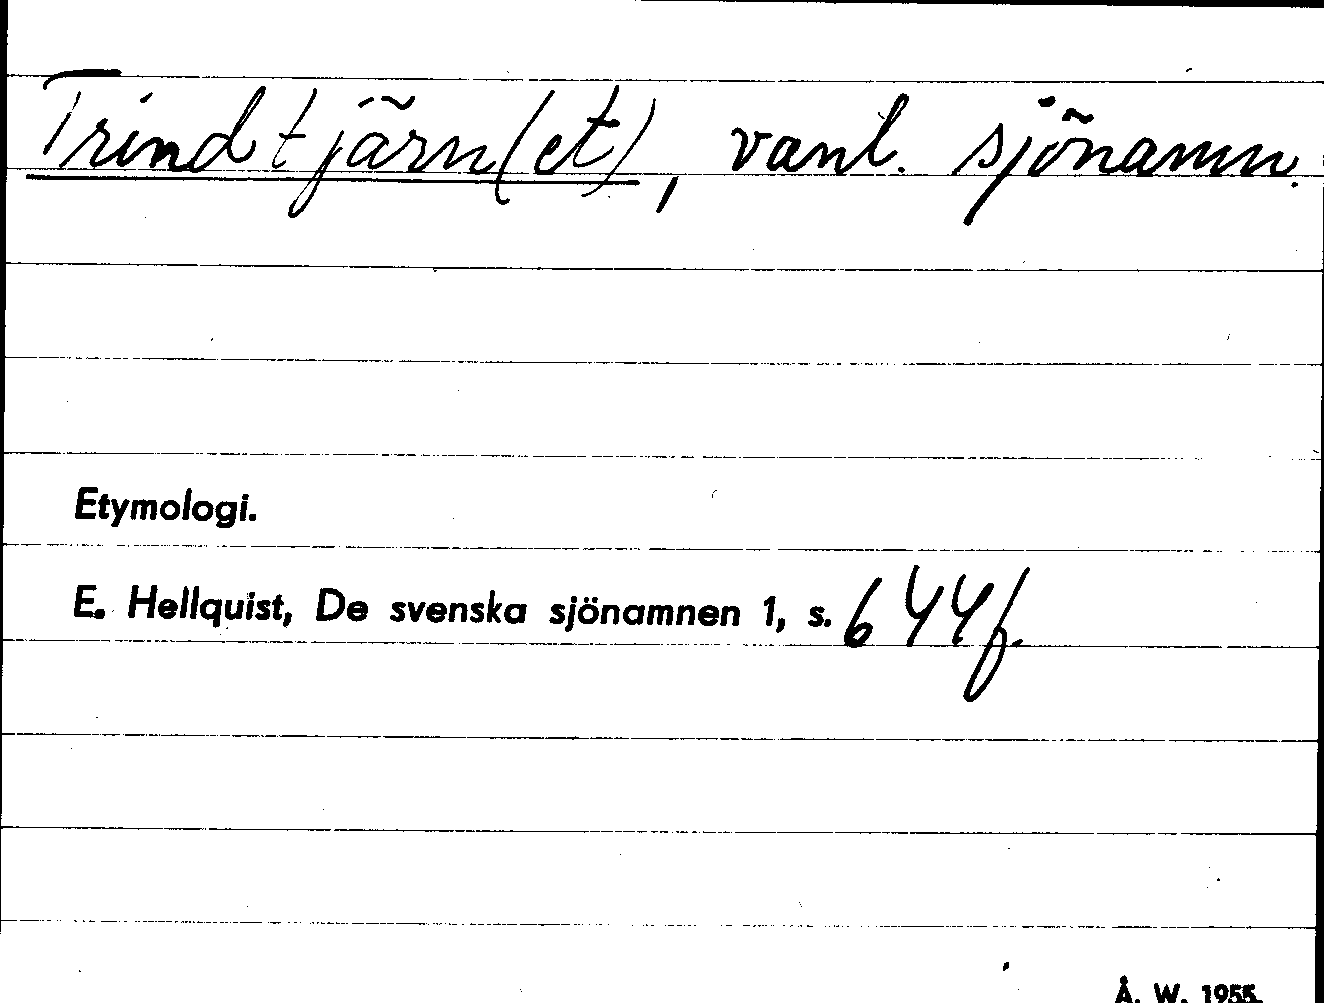 Trindtjärn(et), vanl. sjönamn.
Etymologi.
E. Hellquist, De svenska sjönamnen 1, s. 644f.
Å. W. 1955.